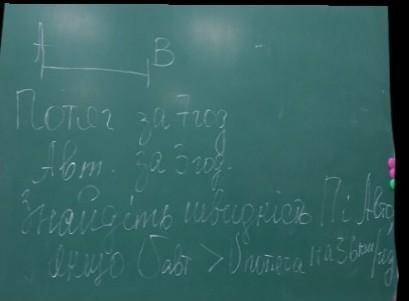 A B
Потяг за 7 год
Авт. за 5 год.
Знайдіть швидкість П і Авто
якщо Vавт > Vпотяга на 36 км/год